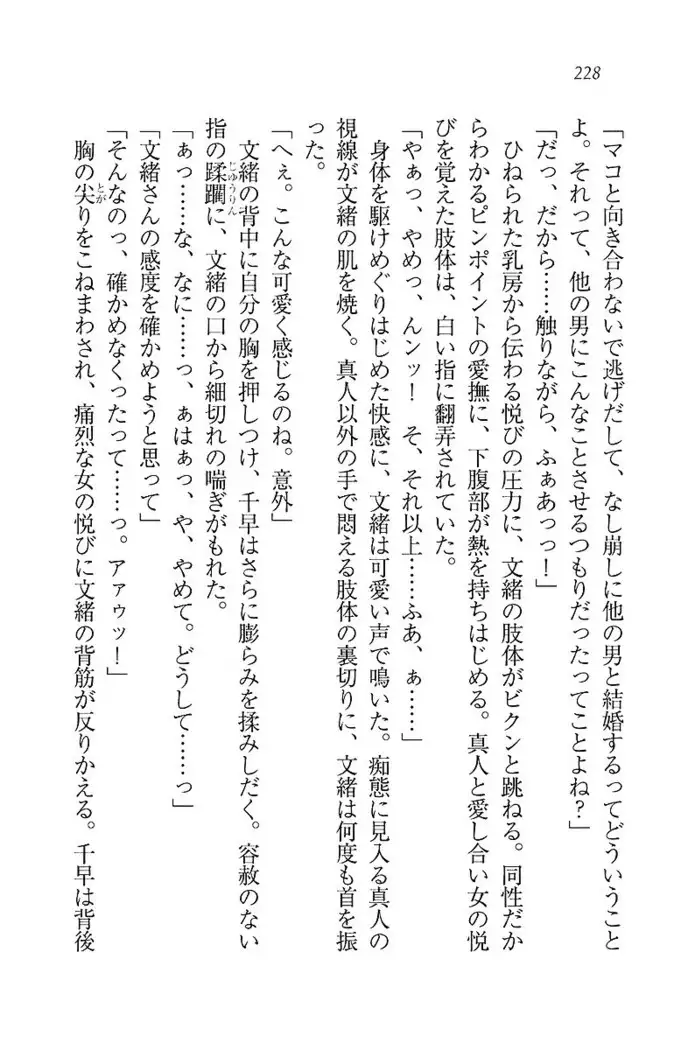 228
「マコと向き合わないで逃げだして、なし崩しに他の男と結婚するってどういうこと
よ。それって、他の男にこんなことさせるつもりだったってことよね？」
「だっ、だから……触りながら、ふぁあっっ！」
ひねられた乳房から伝わる悦びの圧力に、文緒の肢体がビクンと跳ねる。同性だか
らわかるピンポイントの愛撫に、下腹部が熱を持ちはじめる。真人と愛し合い女の悦
びを覚えた肢体は、白い指に翻弄されていた。
「やぁっ、やめっ、んンッ！　そ、それ以上……ふあ、ぁ……」
身体を駆けめぐりはじめた快感に、文緒は可愛い声で鳴いた。痴態に見入る真人の
視線が文緒の肌を焼く。真人以外の手で悶える肢体の裏切りに、文緒は何度も首を振
った。
「へぇ。こんな可愛く感じるのね。意外」
文緒の背中に自分の胸を押しつけ、千早はさらに膨らみを揉みしだく。容赦のない
指の蹂躙に、文緒の口から細切れの喘ぎがもれた。
じゅうりん
「ぁっ……な、なに……っ、ぁはぁっ、や、やめて。どうして……っ」
「文緒さんの感度を確かめようと思って」
「そんなのっ、確かめなくったって……っ。アァゥッ！」
胸の尖りをこねまわされ、痛烈な女の悦びに文緒の背筋が反りかえる。千早は背後
とが